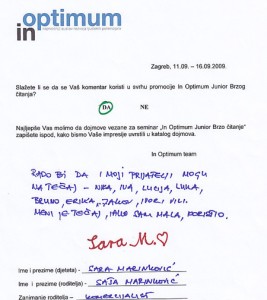 in optimum
Zagreb, 11.09. – 16.09.2009.
Slažete li se da se Vaš komentar koristi u svrhu promocije In Optimum Junior Brzog
čitanja?
DA NE
Najljepše Vas molimo da dojmove vezane za seminar „In Optimum Junior Brzo čitanje"
zapišete ispod, kako bismo Vaše impresije uvrstili u katalog dojmova.
In Optimum team
RADO BI DA I MOJI PRIJATELJI MOGU
NA TEČAJ – NIKA, IVA, LUCIJA, LUKA,
BRUNO, ERIKA, JAKOV, IGOR I VILI.
MENI JE TEČAJ, IAKO SAM MALA, KORISTIO.
Sara M.
Ime i prezime (djeteta) - SARA MARINKOVIĆ
Ime i prezime (roditelja) - SAŠA MARINKOVIĆ
Zanimanje roditelja - KOMERCIJALIST